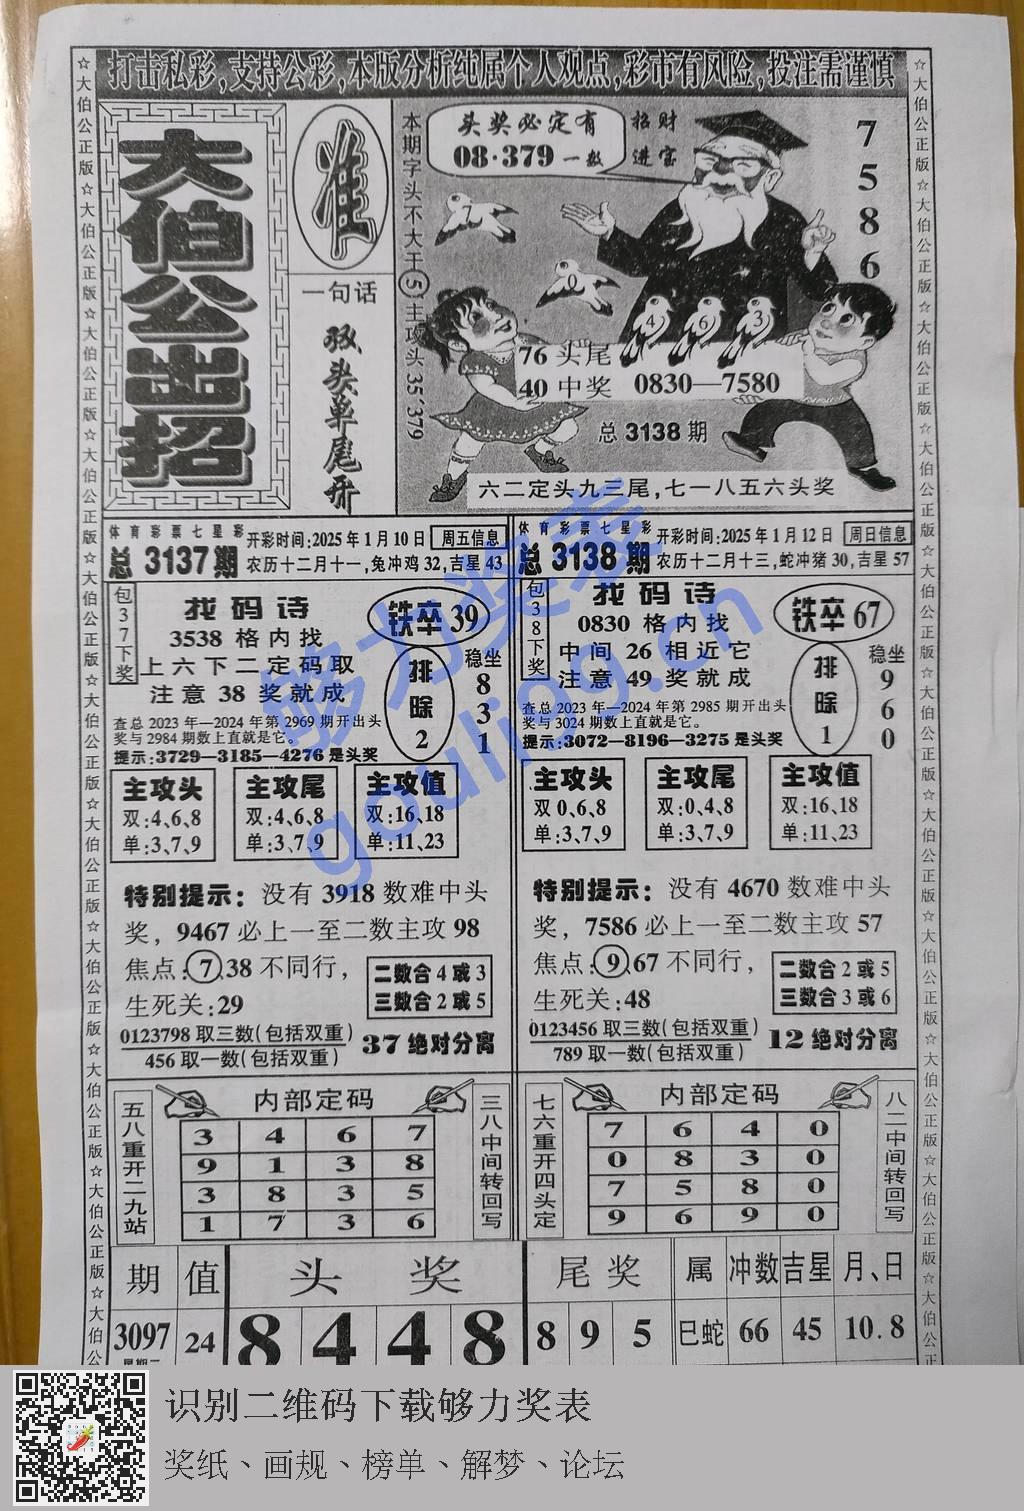 打击私彩,支持公彩,本版分析纯属个人观点,彩市有风险,投注需谨慎
☆大伯公正版☆大伯公正版☆大伯公正版☆大伯公正版☆大伯公正版☆大伯公正版☆大伯公正版☆大伯公正版☆大伯公正版☆大伯公正版☆大伯公
☆大伯公正版☆大伯公正版☆大伯公正版☆大伯公正版☆大伯公正版☆大伯公正版☆大伯公正版☆大伯公正版☆大伯公正版☆大伯公正版☆
大伯公出招
准
一句话
双头单尾开
本期字头不大干⑤主攻头35、379
头奖必定有
08·379一数
招财
进宝
7586
0
4 6 3
76头尾
40中奖 0830—7580
总3138期
六二定头九三尾,七一八五六头奖
体育彩票七星彩
总3137期
开彩时间:2025年1月10日 周五信息
农历十二月十一,兔冲鸡32,吉星43
包37下奖
找码诗
3538格内找
上六下二定码取
注意38奖就成
铁卒39
排除2
稳坐831
查总2023年—2024年第2969期开出头
奖与2984期数上直就是它。
提示:3729—3185—4276是头奖
主攻头
双:4,6,8
单:3,7,9
主攻尾
双:4,6,8
单:3,7,9
主攻值
双:16,18
单:11、23
特别提示:没有3918数难中头
奖，9467必上一至二数主攻98
焦点:⑦.38不同行，
生死关:29
二数合4或3
三数合2或5
0123798取三数(包括双重)
456取一数(包括双重)
37绝对分离
五八重开二九站
内部定码
三八中间转回写
3 4 6 7
9 1 3 8
3 8 3 5
1 7 3 6
体育彩票七星彩
总3138期
开彩时间:2025年1月12日 周日信息
农历十二月十三,蛇冲猪30,吉星57
包38下奖
找码诗
0830格内找
中间26相近它
注意49奖就成
铁卒67
排除1
稳坐960
查总2023年—2024年第2985期开出头
奖与3024期数上直就是它。
提示:3072—8196—3275是头奖
主攻头
双0,6,8
单:3,7,9
主攻尾
双:0,4,8
单:3,7,9
主攻值
双:16,18
单:11、23
特别提示:没有4670数难中头
奖，7586必上一至二数主攻57
焦点:⑨.67不同行，
生死关:48
二数合2或5
三数合3或6
0123456取三数(包括双重)
789取一数(包括双重)
12绝对分离
七六重开四头定
内部定码
八二中间转回写
7 6 4 0
0 8 3 0
7 5 8 0
9 6 9 0
期 值 头奖 尾奖 属 冲数 吉星 月、日
3097 24 8 4 4 8 8 9 5 巳蛇 66 45 10.8
够力奖表
gouliog.cn
识别二维码下载够力奖表
奖纸、画规、榜单、解梦、论坛